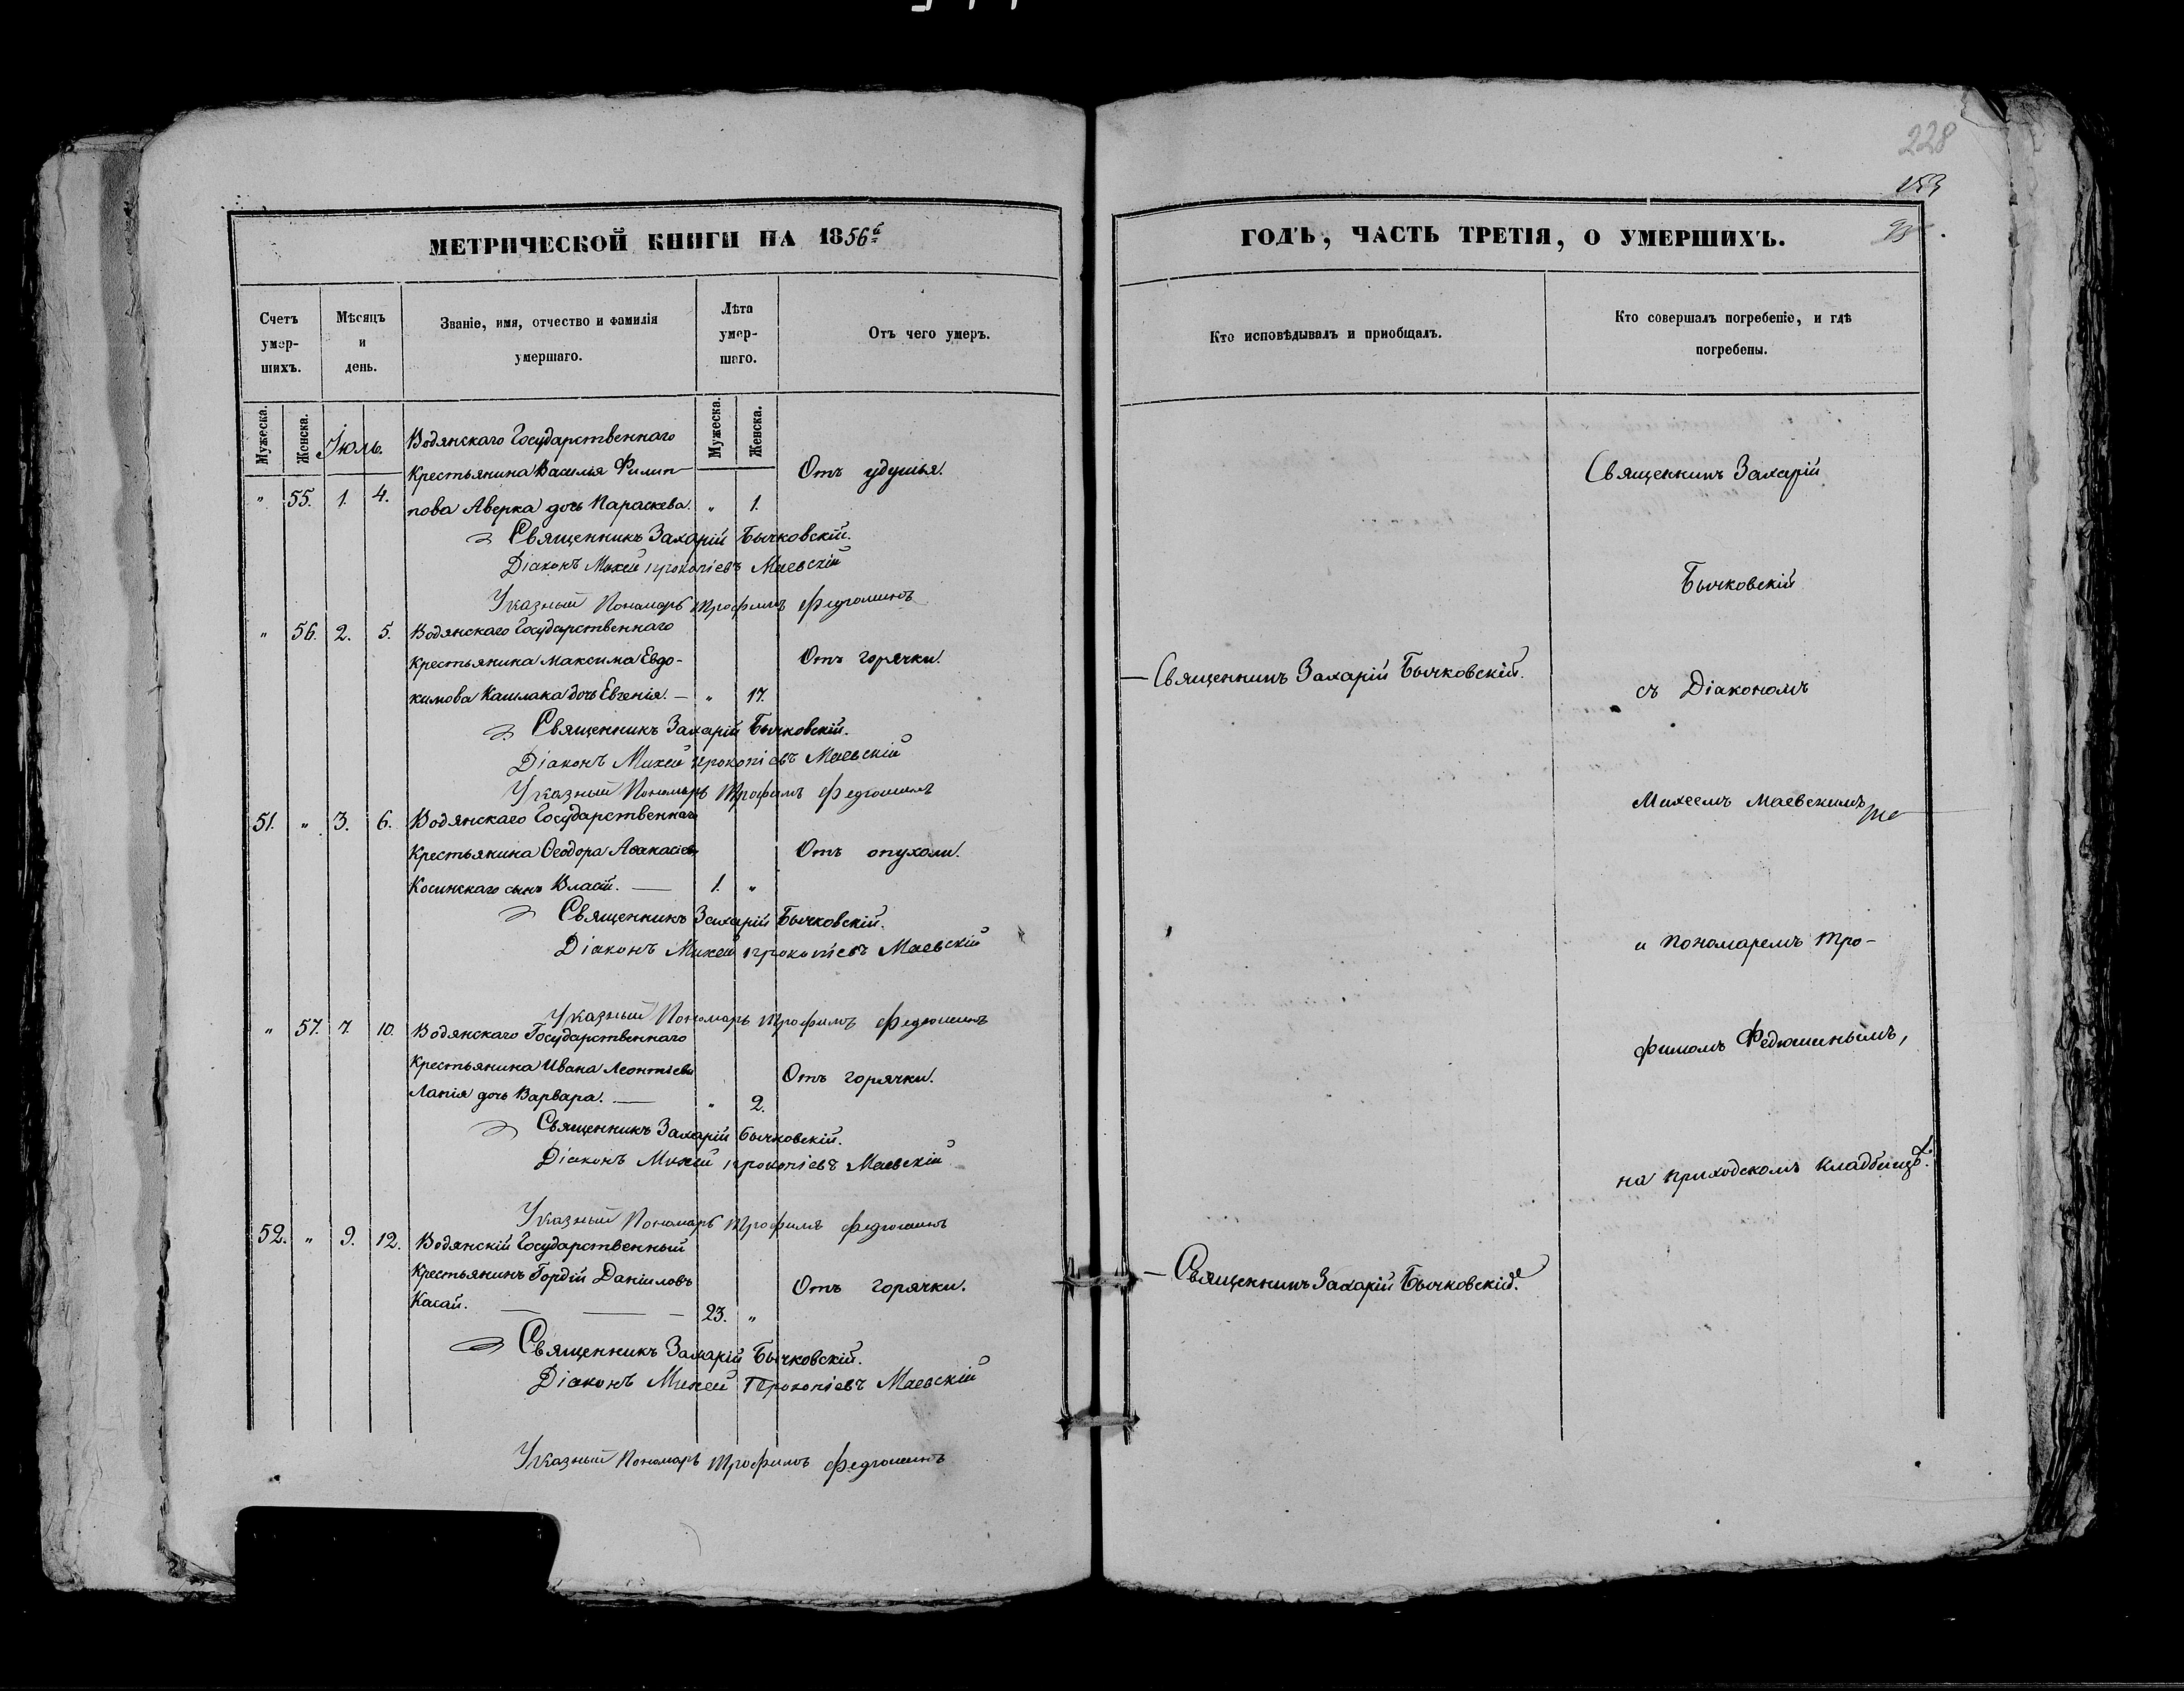 228
МЕТРИЧЕСКОЙ КНИГИ НА 1856й
ГОДЪ, ЧАСТЬ ТРЕТІЯ, О УМЕРШИХЪ.
Счетъ умер-шихъ.
Мѣсяцъ и день.
Званіе, имя, отчество и фамилія умершаго.
Лѣта умер-шаго.
Отъ чего умеръ.
Кто исповѣдывалъ и приобщалъ.
Кто совершалъ погребеніе, и гдѣ погребены.
Мужеска.
Женска.
Іюль.
Мужеска.
Женска.
Водянскаго Государственнаго
Крестьянина Василья Филип-
" 55. 1. 4. пова Аверка дочь Параскева. " 1. Отъ удушья.
Священникъ Захарій Бычковскій.
Діаконъ Михей Прокопіевъ Маевскій
Указный Пономарь Трофимъ Федюшинъ
" 56. 2. 5. Водянскаго Государственнаго
Крестьянина Максима Евдо- Отъ горячки.
кимова Кашлака дочь Евгенія. — " 17.
— Священникъ Захарій Бычковскій.
Священникъ Захарій Бычковскій.
Діаконъ Михей Прокопіевъ Маевскій
Указный Пономарь Трофимъ Федюшинъ
51. " 3. 6. Водянскаго Государственнаго
Крестьянина Ѳеодора Аѳанасіев Отъ опухоли.
Косинскаго сынъ Власій. — 1. "
Священникъ Захарій Бычковскій.
Діаконъ Михей Прокопіевъ Маевскій
Указный Пономарь Трофимъ Федюшинъ
" 57. 7. 10. Водянскаго Государственнаго
Крестьянина Ивана Леонтіева Отъ горячки.
Лапія дочь Варвара. — " 2.
Священникъ Захарій Бычковскій.
Діаконъ Михей Прокопіевъ Маевскій
Указный Пономарь Трофимъ Федюшинъ
52. " 9. 12. Водянскій Государственный
Крестьянинъ Гордій Даніиловъ Отъ горячки.
Касай. — — — 23. "
— Священникъ Захарій Бычковскій.
Священникъ Захарій Бычковскій.
Діаконъ Михей Прокопіевъ Маевскій
Указный Пономарь Трофимъ Федюшинъ
Священникъ Захарій
Бычковскій
съ Діакономъ
Михеемъ Маевскимъ
и Пономаремъ Тро-
фимомъ Федюшинымъ,
на приходскомъ кладбищѣ.